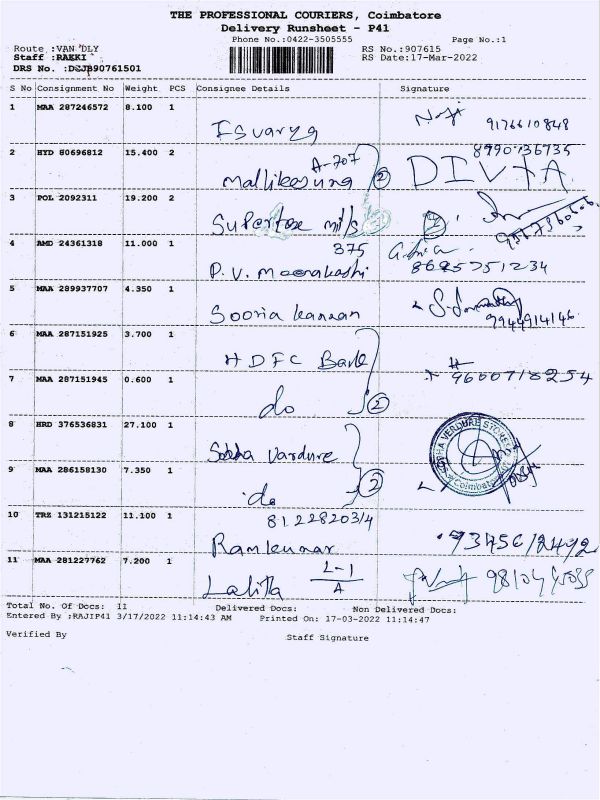 THE PROFESSIONAL COURIERS, Coimbatore
Delivery Runsheet - P41
Phone No.:0422-3505555 Page No.:1
Route :VAN DLY RS No.:907615
Staff :RAKKI RS Date:17-Mar-2022
DRS No. :DCJB90761501
S No Consignment No Weight PCS Consignee Details Signature
1 MAA 287246572 8.100 1
Isvarya 9176610848
2 HYD 80696812 15.400 2
A-707 8990736735
Mallikarjuna 2 DIVYA
3 POL 2092311 19.200 2
Supertex mills
4 AMD 24361318 11.000 1
375
P.V. Meenakashi 8695751234
5 MAA 289937707 4.350 1
Sooria kannan 9944914146
6 MAA 287151925 3.700 1
HDFC Bank
7 MAA 287151945 0.600 1 9600718254
do 2
8 HRD 376536831 27.100 1
Sobha Vardure
9 MAA 286158130 7.350 1
do 2
Coimbatore
10 TRZ 131215122 11.100 1
8122820314
Ramkumar
11 MAA 281227762 7.200 1
L-1
Lalitha 4
Total No. Of Docs: 11 Delivered Docs: Non Delivered Docs:
Entered By :RAJIP41 3/17/2022 11:14:43 AM Printed On: 17-03-2022 11:14:47
Verified By Staff Signature